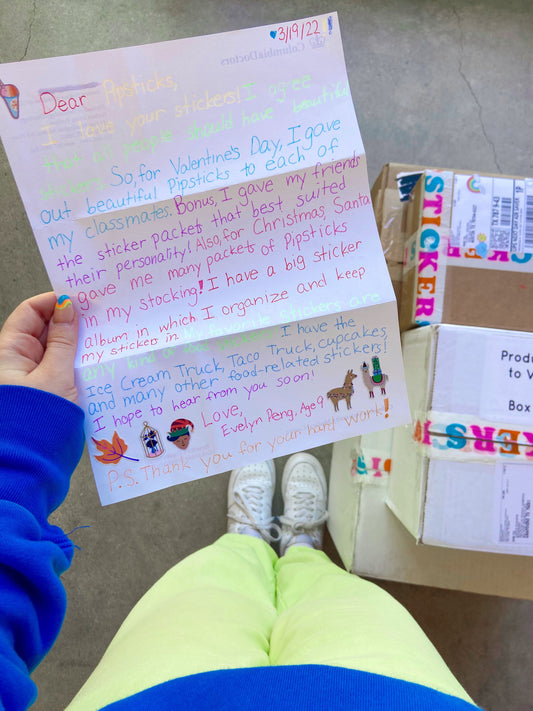 3/19/22
ColumbiaDoctors
Dear Pipsticks,
I love your stickers! I agree
that all people should have beautiful
stickers. So, for Valentine's Day, I gave
out beautiful Pipsticks to each of
my classmates. Bonus, I gave my friends
the sticker packets that best suited
their personality! Also, for Christmas, Santa
gave me many packets of Pipsticks
in my stocking! I have a big sticker
album in which I organize and keep
my stickers in. My favorite stickers are
any kind of
I have the
Ice Cream Truck, Taco Truck, cupcakes
and many other food-related stickers!
I hope to hear from you soon!
Love,
Evelyn Peng, Age 9
P.S. Thank you for your hard work!
STICKER
Produ
to V
Box
ERS